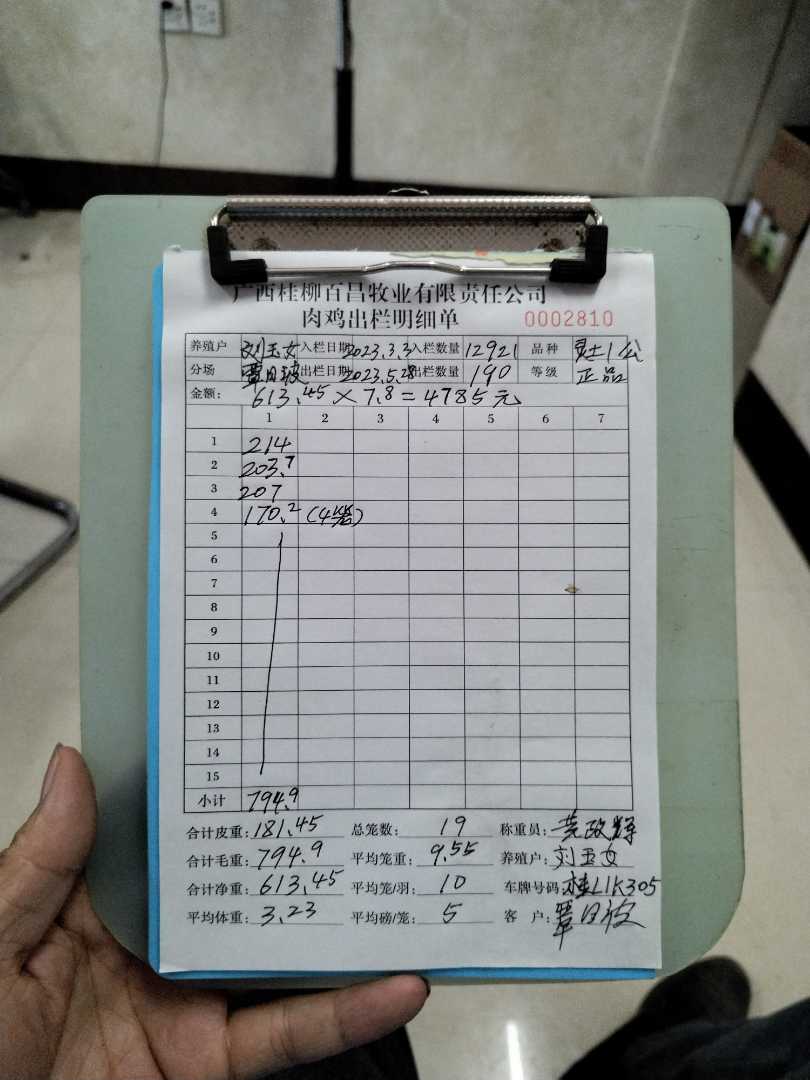 广西桂柳百昌牧业有限责任公司
肉鸡出栏明细单 0002810
养殖户 刘玉女 入栏日期 2023.3.3 入栏数量 12921 品种 灵土1公
分场 覃日波 出栏日期 2023.5.28 出栏数量 190 等级 正品
金额: 613.45×7.8=4785元
1 2 3 4 5 6 7
1 214
2 203.7
3 207
4 170.2 (4笼)
5
6
7
8
9
10
11
12
13
14
15
小计 794.9
合计皮重: 181.45 总笼数: 19 称重员:
合计毛重: 794.9 平均笼重: 9.55 养殖户: 刘玉女
合计净重: 613.45 平均笼/羽: 10 车牌号码: 桂L1K305
平均体重: 3.23 平均磅/笼: 5 客户: 覃日波